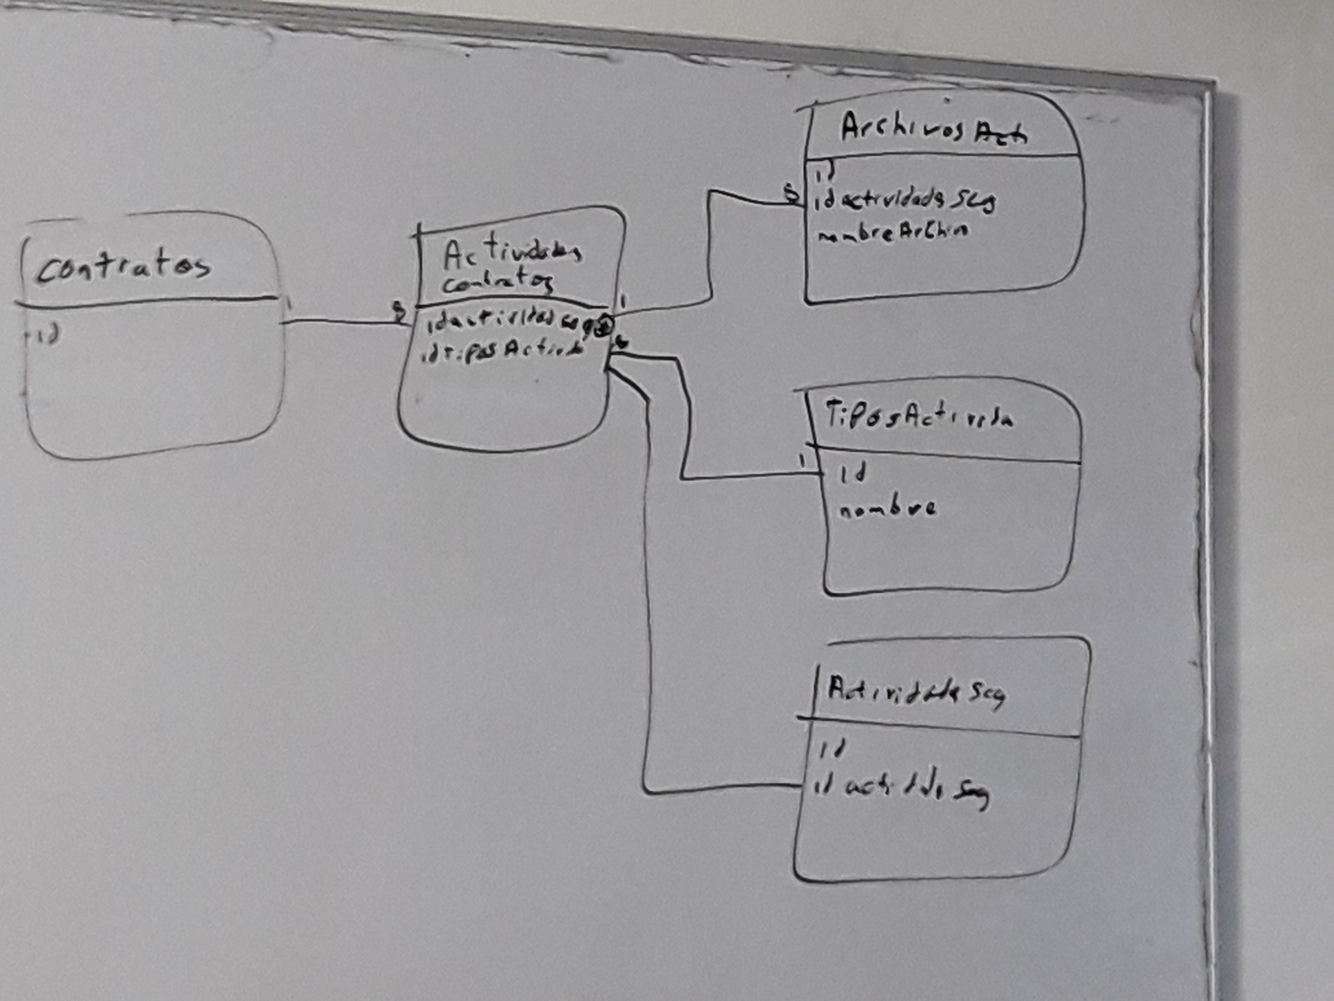 contratos
id
1
8
Actividades
contratos
idactividadseg
idTiposActivida
1
8
8
Archivos
id
idactividadeseg
nombreArchivo
1
TiposActivida
id
nombre
Actividadeseg
id